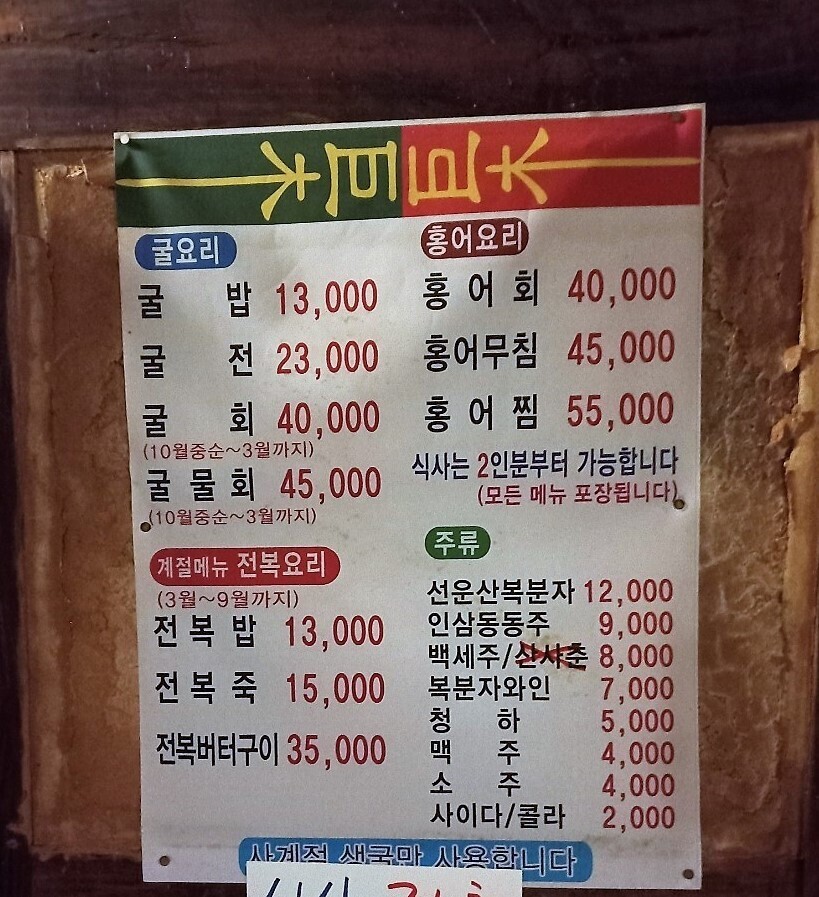 메뉴
굴요리
굴 밥 13,000
굴 전 23,000
굴 회 40,000
(10월중순~3월까지)
굴 물 회 45,000
(10월중순~3월까지)
계절메뉴 전복요리
(3월~9월까지)
전 복 밥 13,000
전 복 죽 15,000
전복버터구이 35,000
홍어요리
홍 어 회 40,000
홍어무침 45,000
홍 어 찜 55,000
식사는 2인분부터 가능합니다
(모든 메뉴 포장됩니다)
주류
선운산복분자 12,000
인삼동동주 9,000
백세주/산사춘 8,000
복분자와인 7,000
청 하 5,000
맥 주 4,000
소 주 4,000
사이다/콜라 2,000
사계절 생굴만 사용합니다